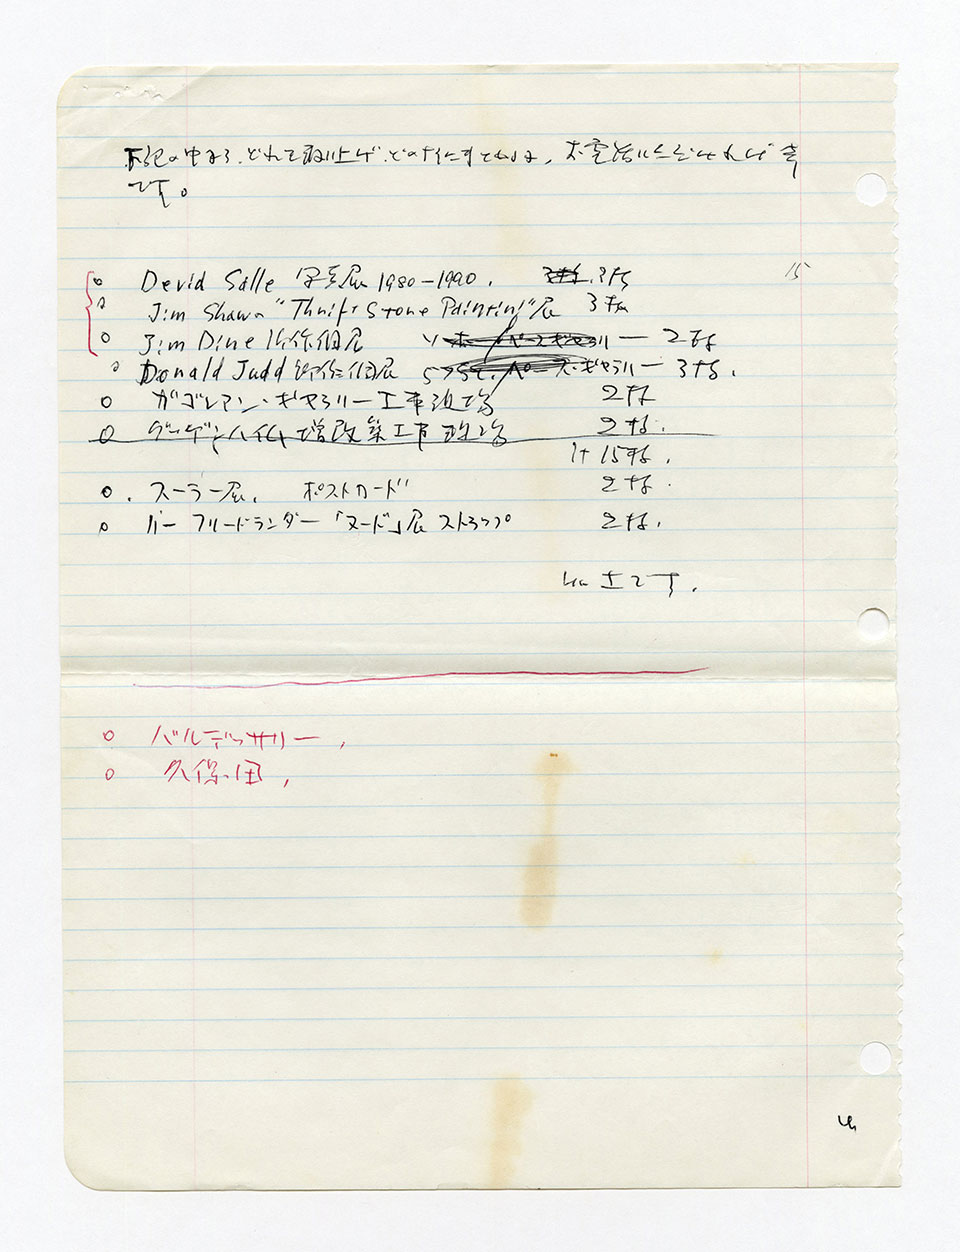 下記の中から、どれを取り上げ、どのようにするかは、お電話いただければ幸
です。
15
○ David Salle 写真展 1980-1990. 3枚
○ Jim Shaw "Thrift Store Painting" 展 3枚
○ Jim Dine 新作個展 2枚
○ Donald Judd 新作個展 ギャラリー 3枚.
○ ガゴシアン・ギャラリー工事現場 2枚
○ グッゲンハイム増改築工事現場 2枚.
計 15枚.
○. スーラー展. ポストカード 2枚.
○ リー フリードランダー「ヌード」展 ストラップ 2枚.
以上です.
○ バルデッサリー,
○ 久保田,